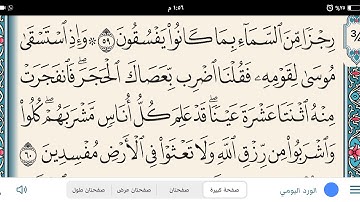 ١:٥٦ م
٪٧٥
رِجْزًا مِّنَ ٱلسَّمَآءِ بِمَا كَانُوا۟ يَفْسُقُونَ ٥٩ ۞ وَإِذِ ٱسْتَسْقَىٰ
مُوسَىٰ لِقَوْمِهِۦ فَقُلْنَا ٱضْرِب بِّعَصَاكَ ٱلْحَجَرَ ۖ فَٱنفَجَرَتْ
مِنْهُ ٱثْنَتَا عَشْرَةَ عَيْنًا ۖ قَدْ عَلِمَ كُلُّ أُنَاسٍ مَّشْرَبَهُمْ ۖ كُلُوا۟
وَٱشْرَبُوا۟ مِن رِّزْقِ ٱللَّهِ وَلَا تَعْثَوْا۟ فِى ٱلْأَرْضِ مُفْسِدِينَ ٦٠
الورد اليومي صفحة كبيرة صفحتان صفحتان عرض صفحتان طول